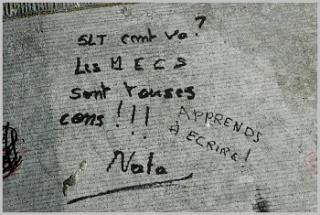 SLT cmt va ?
Les MECS
sont touses
cons !!!
Nata
APPRENDS
À ECRIRE !